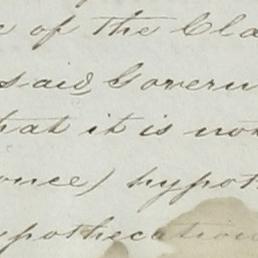 of the Cla
said Govern
that it is not
once) hypot
ypothecation